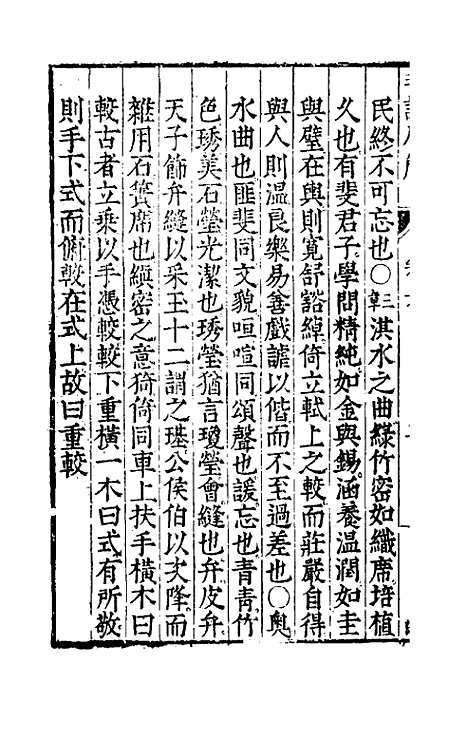 民終不可忘也○三章淇水之曲綠竹密如織席培植
久也有斐君子學問精純如金與錫涵養温潤如圭
與璧在輿則寛舒豁綽倚立軾上之較而莊嚴自得
與人則温良樂易善戲謔以偕而不至過差也○奧
水曲也匪斐同文貌咺喧同頌聲也諼忘也青青竹
色琇美石瑩光潔也琇瑩猶言瓊瑩會縫也弁皮弁
天子飾弁縫以采玉十二謂之璂公侯伯以次降而
雜用石簀席也縝密之意猗倚同車上扶手橫木曰
較古者立乗以手憑較較下重橫一木曰式有所敬
則手下式而俯較在式上故曰重較